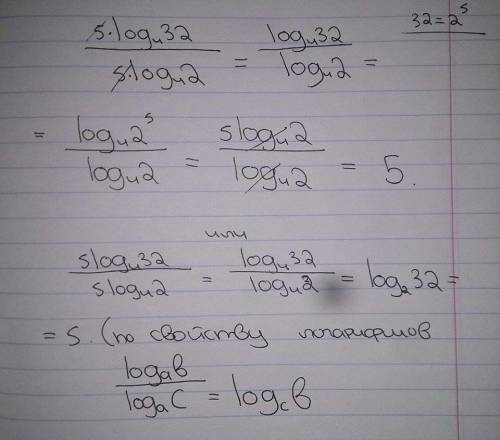 32 = 2⁵
5·log₄32 / 5·log₄2 = log₄32 / log₄2 =
= log₄2⁵ / log₄2 = 5log₄2 / log₄2 = 5.
или
5log₄32 / 5log₄2 = log₄32 / log₄2 = log₂32 =
= 5. (по свойству логарифмов
logₐb / logₐc = log_c b